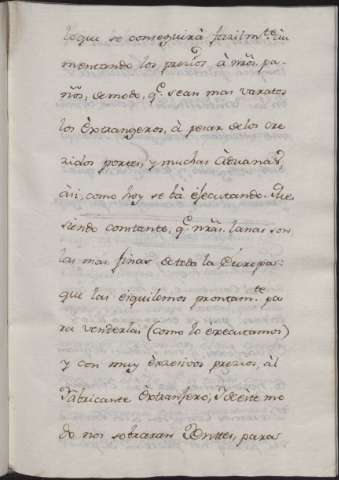 lo que se conseguirà facilmte. au
mentando los precios à nros. pa-
ños, de modo, qe. sean mas varatos
los Extrangeros, à pesar de los cre
zidos portes, y muchas Aduanas,
asi, como hoy se bà èjecutando. Que
siendo constante, qe. nras. lanas son
las mas finas de toda la Europa:
que las esquilemos prontamte. pa
ra venderlas (como lo èxecutamos)
y con muy èxcesivos precios, àl
Fabricante Extranjero, y de este mo
do nos sobraran para